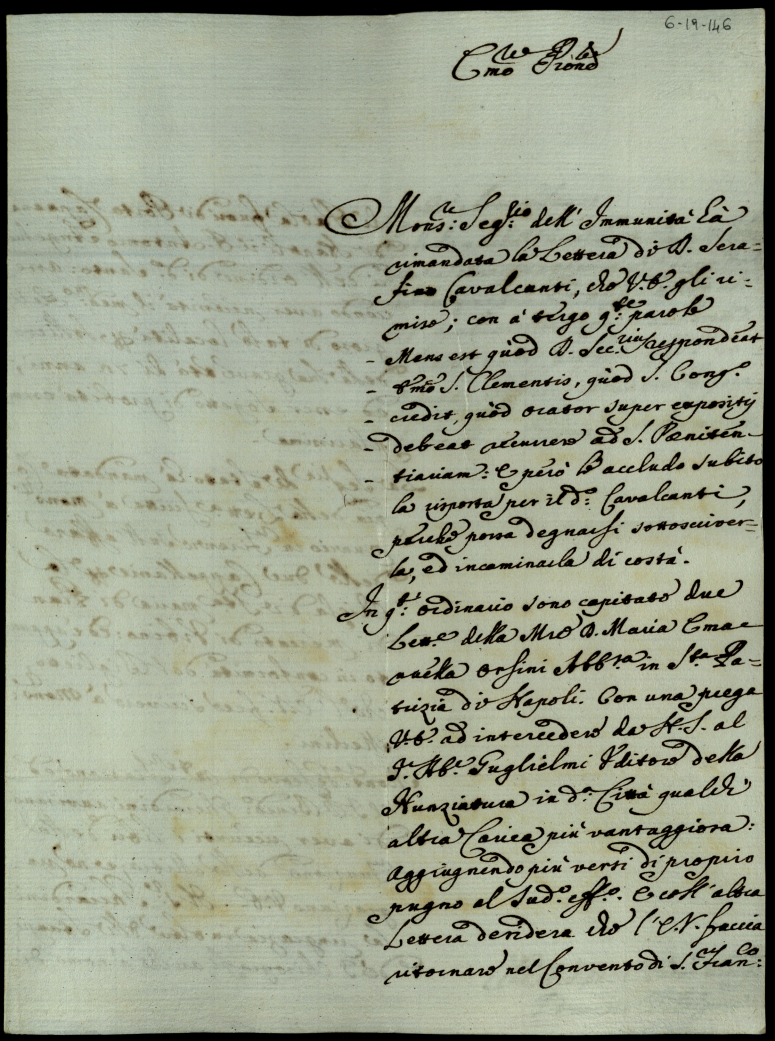 6-19-146
Em̃o e Rm̃o Prõne
Mons:re Seg:rio dell' Immunità hà
rimandata la Lettera di D. Sera-
fino Cavalcanti, che V.E. gli ri-
mise; con à tergo q:te parole
- Mens est quòd D. Sec:rius respondeat
- Em̃o S. Clementis, quòd S. Cong.o
- credit, quòd orator super expositis
- debeat recurrere ad S. Pœniten-
- tiariam: E però le accludo subito
la risposta per il d:o Cavalcanti,
perche possa degnarsi sottoscriver-
la, ed incaminarla di costà.
In q:to ordinario sono capitate due
Lett:e della M:re D. Maria Ema-
nuella Orsini Abb:sa in S:ta Pa-
trizia di Napoli. Con una prega
V.E. ad intercedere da N.S. al
Guglielmi Uditore della
Nunziatura in d:a Città qualch'
altra Carica più vantaggiosa:
aggiugnendo più versi di proprio
pugno al Sud:o eff:o. E coll' altra
Lettera desidera che l'E.V. faccia
ritornare nel Convento di S. Fran:co